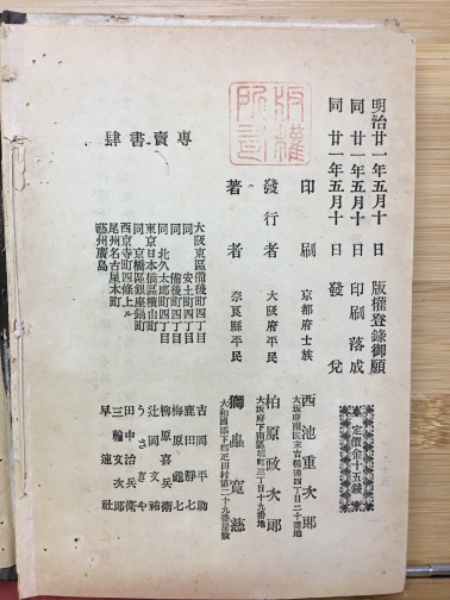 明治廿一年五月十日 版權登錄御願
同 廿一年五月十日 印刷落成
同 廿一年五月十日 發兌
定價金十五錢
版權所有
印刷 京都府士族 西池重次郎
大坂府南區末吉橋通四丁目二十番地
發行者 大阪府平民 柏原政次郎
大坂府下南區塩町三丁目十九番地
著者 奈良縣平民 獨蟲寬慈
大和國添下郡疋田村第二十九番屋敷
專賣書肆
大阪東區備後町四丁目 吉岡平助
同 安土町四丁目 鹿田靜七
同 備後町四丁目 梅原龜七
同 北久太郎町四丁目 柳原喜兵衛
東京日本橋區橫山町 辻岡文祐
同京橋區銀座鍋町 うさぎや
西京寺町四條上ル 田中治兵衛
尾州名古屋本町 三輪文次郎
藝州廣島 早速社